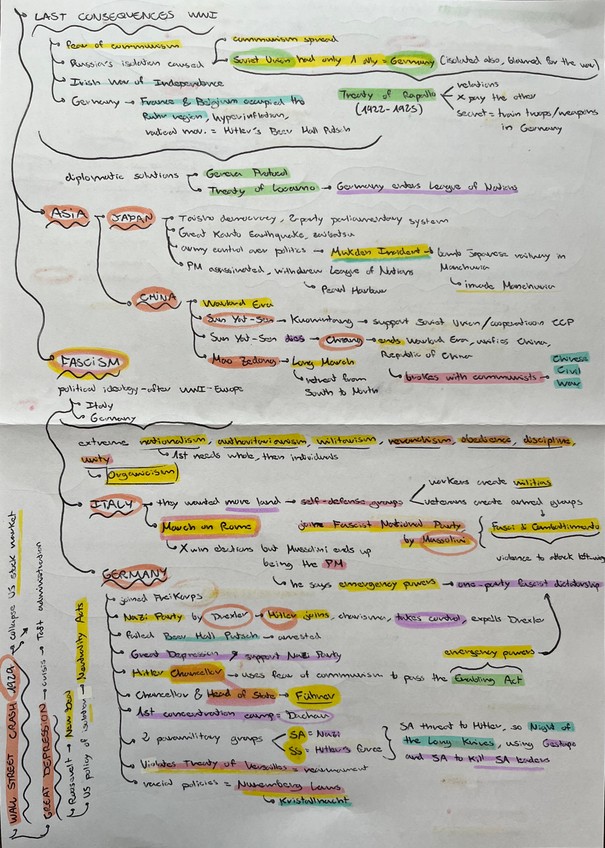 LAST CONSEQUENCES WWI
fear of communism
Russia's isolation caused
communism spread
Soviet Union had only 1 ally = Germany (isolated also, blamed for the war)
Irish War of Independence
Germany → France & Belgium occupied the
Ruhr region, hyperinflation,
radical mov. = Hitler's Beer Hall Putsch
Treaty of Rapallo
(1922-1925)
relations
X pay the other
secret = train troops/weapons
in Germany
diplomatic solutions
Geneva Protocol
Treaty of Locarno → Germany enters League of Nations
ASIA
JAPAN
Taisho democracy, 2 party parliamentary system
Great Kanto Earthquake, zaibatsu
army control over politics → Mukden Incident → bomb Japanese railway in
Manchuria
invade Manchuria
PM assassinated, withdrew League of Nations
Pearl Harbour
CHINA
Warlord Era
Sun Yat-Sen → Kuomintang → support Soviet Union/cooperation CCP
Sun Yat-Sen dies → Chiang → ends Warlord Era, unifies China,
Republic of China
Mao Zedong → Long March
retreat from
South to North
brokes with communists →
Chinese
Civil
War
FASCISM
political ideology - after WWI - Europe
Italy
Germany
extreme nationalism, authoritarianism, militarism, revanchism, obedience, discipline,
unity
1st needs whole, then individuals
Organicism
ITALY
they wanted more land → self-defense groups
workers create militias
veterans create armed groups
March on Rome
joins Fascist National Party
by Mussolini
Fasci di Combattimento
violence to attack leftwing
X win elections but Mussolini ends up
being the PM
he says emmergency powers → one-party fascist dictatorship
GERMANY
joined FreiKorps
Nazi Party by Drexler → Hitler joins, charisma, takes control, expells Drexler
failed Beer Hall Putsch → arrested
Great Depression ↗ support Nazi Party
emergency powers
Hitler Chancellor → uses fear of communism to pass the Enabling Act
Chancellor & Head of State → Führer
1st concentration camp = Dachau
2 paramilitary groups
SA = Nazi
SS = Hitler's force
SA threat to Hitler, so Night of
the Long Knives, using Gestapo
and SA to kill SA leaders
Violates Treaty of Versailles = rearmament
racial policies = Nuremberg Laws
Kristallnacht
WALL STREET CRASH 1929 → collapse US stock market
GREAT DEPRESSION → crisis → Taft administration
Roosevelt → New Deal
US policy of isolation → Neutrality Acts